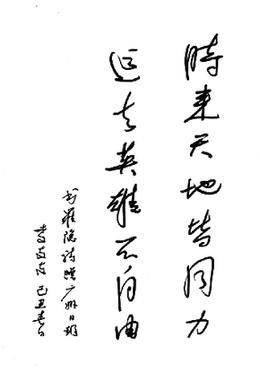 時来天地皆同力
运去英雄不自由
书罗隐诗赠广州日报
己丑春日